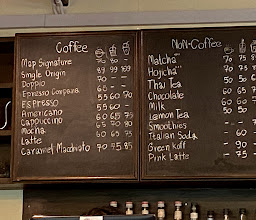 Coffee
Map Signature 70 80 -
Single Origin 89 99 109
Doppio 50 - -
Espresso Conpana 55 65 -
Espresso 55 60 -
Americano 55 60 70
Cappuccino 65 70 80
Mocha 60 65 75
Latte 60 65 75
Caramel Macchiato 70 75 85
Non-Coffee
Matcha 70 75
Hojicha 70 75
Thai Tea 50 50
Chocolate 60 65
Milk 60 65
Lemon Tea 50 50
Smoothies - -
Italian Soda - 60
Green koff - 90
Pink Latte - 75